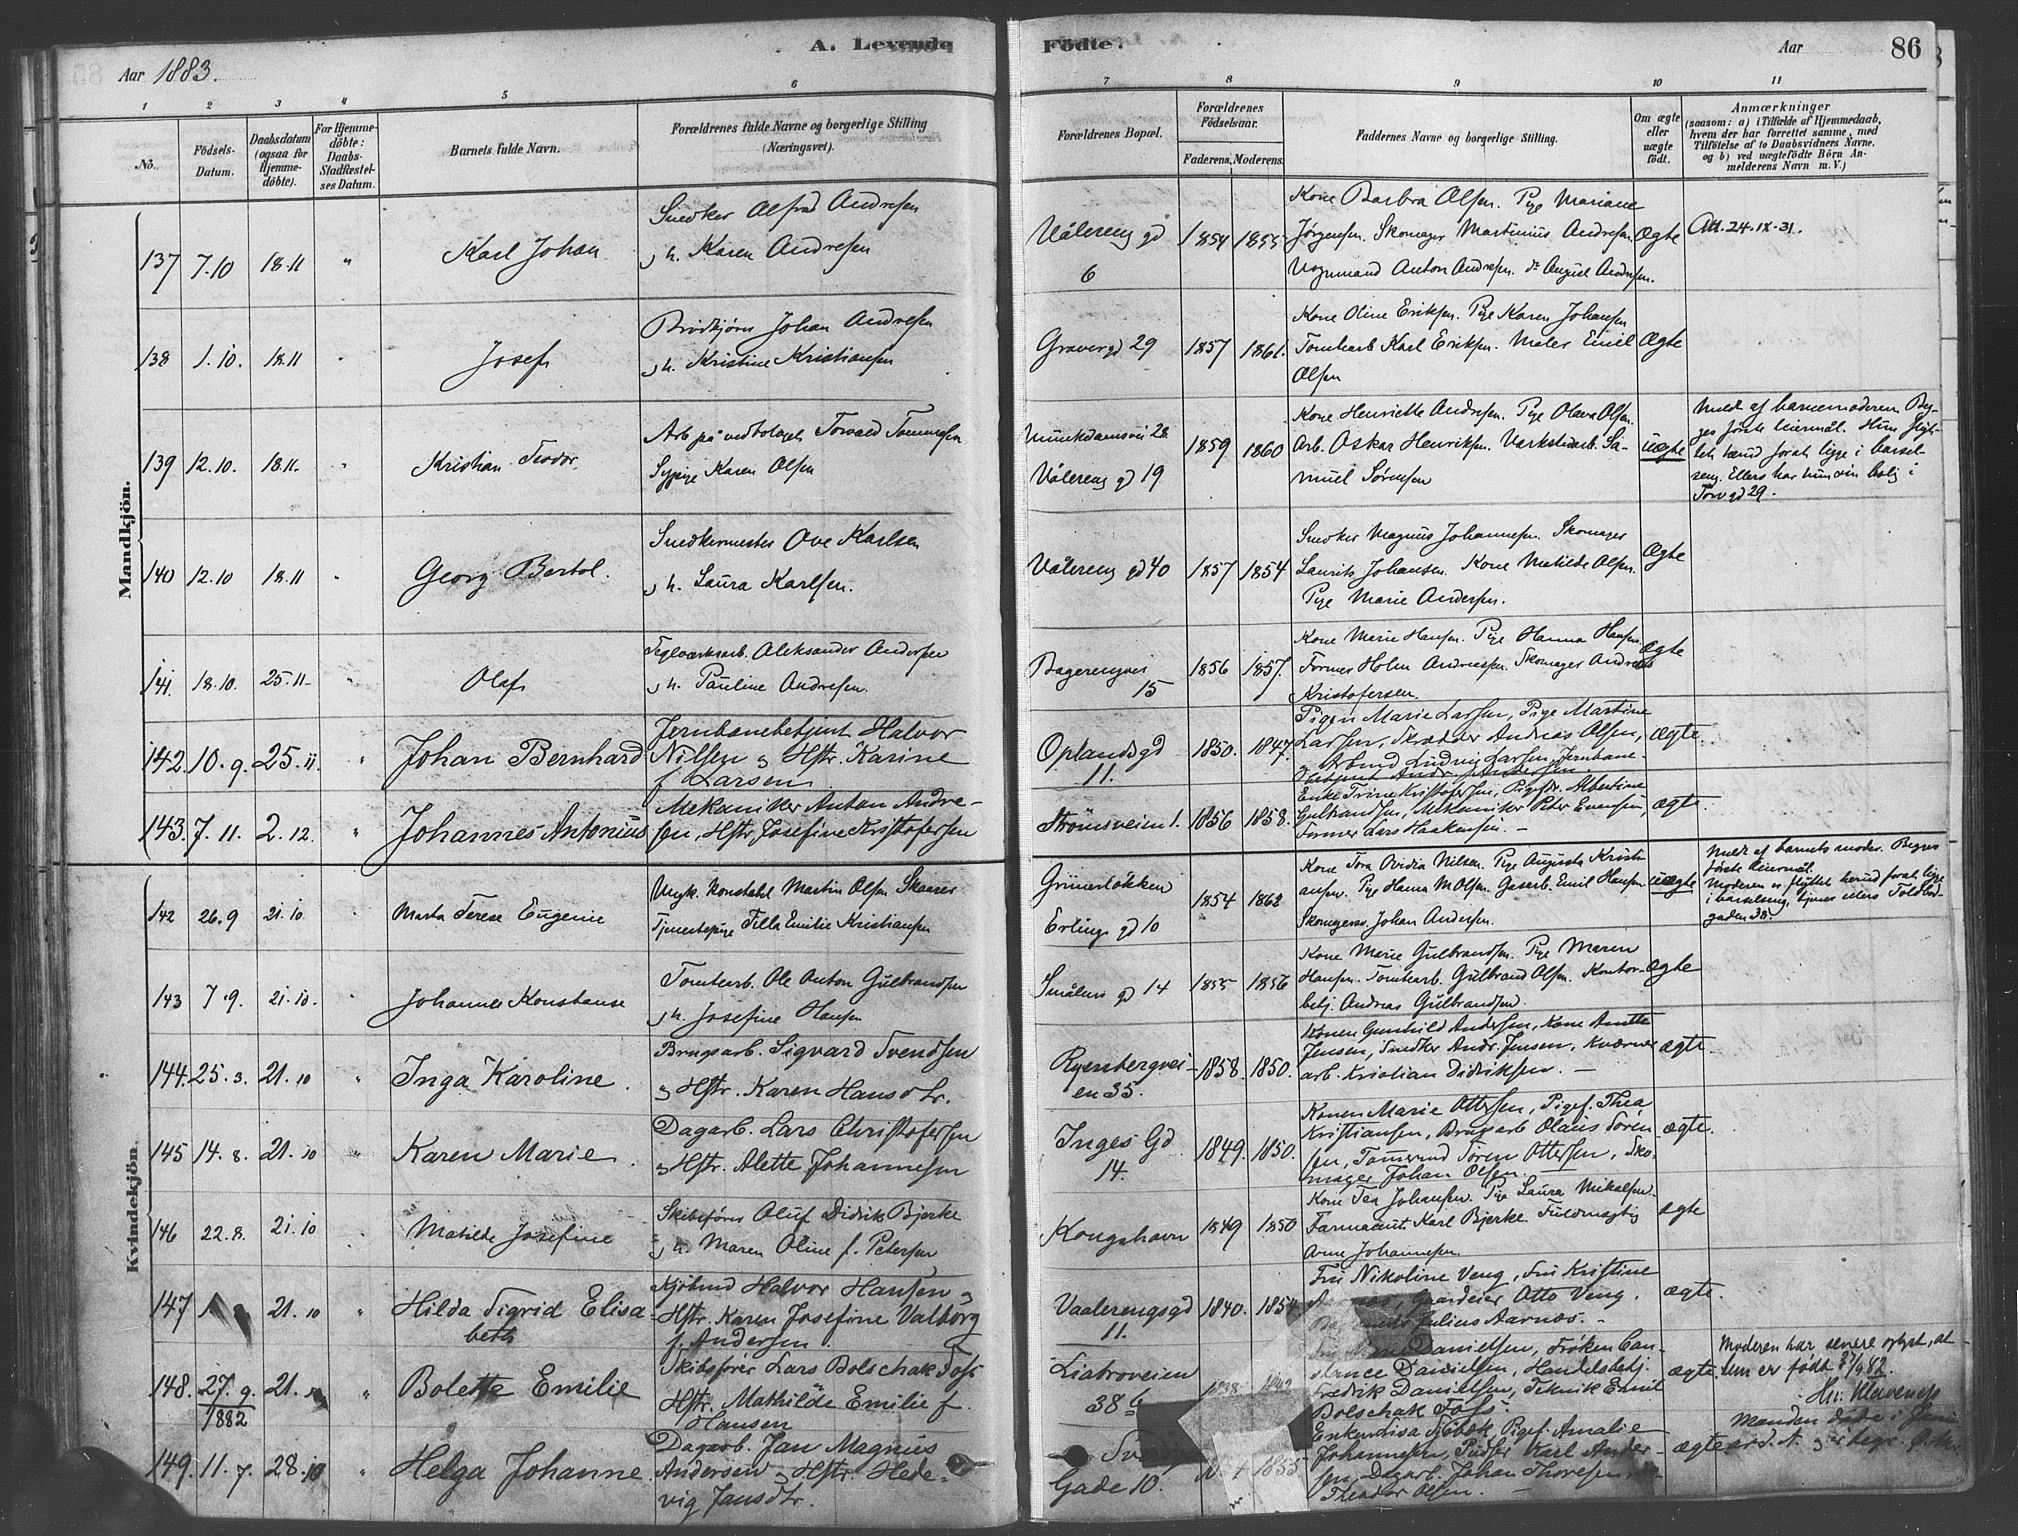 A. Levende
Fødte.
Aar 1883.
Aar
86
1 2 3 4 5 6 7 8 9 10 11
No.
Födsels-
Datum.
Daabsdatum
(ogsaa for
Hjemme-
döbte).
For Hjemme-
döbte:
Daabs-
Stadfæstel-
ses Datum.
Barnets fulde Navn.
Forældrenes fulde Navne og borgerlige Stilling
(Næringsvei).
Forældrenes Bopæl.
Forældrenes
Födselsaar.
Faderens. Moderens.
Faddernes Navne og borgerlige Stilling.
Om ægte
eller
uægte
födt.
Anmærkninger
(saasom: a) i Tilfælde af Hjemmedaab,
hvem der har forrettet samme, med
Tilföielse af to Daabsvidners Navne,
og b) ved uægtefödte Börn An-
melderens Navn m. V.)
Mandkjön.
137 7.10 18.11 "
Karl Johan
Snedker Alfred Andresen
h. Karen Andresen
Vålereng gd
6
1854 1855
Kone Barbra Olsen. Pige Mariane
Jørgensen. Skomager Martinius Andresen
Vognmand Anton Andresen. do August Andresen.
Ægte
Att. 24-IX-31.
138 1.10. 18.11 "
Josef
Brødkjører Johan Andresen
h. Kristine Kristiansen
Gravergd 29
1857 1861.
Kone Oline Eriksen. Pige Karen Johansen
Tomtearb Karl Eriksen. Maler Emil
Olsen
Ægte
139 12.10. 18.11. "
Kristian Teodor
Arb på vedbolaget Torvald Tommesen
Sypige Karen Olsen
Munkdamsvei 28
Vålereng gd 19
1859 1860
Kone Henriette Andresen. Pige Olava Olsen.
Arb. Oskar Henriksen. Værkstedarb. Sa-
muel Sørensen
uægte
Meldt af barnemoderen. Beg-
ges første leiermål. Hun flyt-
tet herud forat ligge i barsel-
seng. Ellers har hun sin bolig i
Torvgd 29.
140 12.10 18.11 "
Georg Bertol.
Snedkermester Ove Karlsen
h. Laura Karlsen.
Vålereng gd 40
1857 1854
Snedker Magnus Johannesen. Skomager
Laurits Johansen. Kone Matilde Olsen.
Pige Marie Andersen.
Ægte
141. 18.10. 25.11- "
Olaf
Teglværksarb. Aleksander Andersen
h. Pauline Andresen.
Bagerengvei
15
1856 1857.
Kone Marie Hansen. Pige Hanna Hansen.
Former Holm Andreassen. Skomager Andreas
Kristofersen.
Ægte
142. 10.9. 25.11. "
Johan Bernhard
Jernbanebetjent Halvor
Nilsen og Hstr. Karine
f. Larsen
Oplandsgd
11.
1850. 1847.
Pigen Marie Larsen, Pige Martine
Larsen, Skrædder Andreas Olsen,
Ludvig Larsen, Jernbane-
ægte.
143. 7.11. 2.12. "
Johannes Antonius
Mekaniker Anton Andre-
sen, Hstr. Josefine Kristofersen
Strömsveien 1.
1856 1858.
Enke Trine Kristofersen, Pigestr. Albertine
Gulbrandsen, Mekaniker Peter Evensen,
Former Lars Haakensen. —
ægte.
Kvindekjön.
142 26.9 21.10 "
Marta Terese Eugenie
Ungk. konstabl Martin Olsen Skaarer
Tjenestepige Tilla Emilie Kristiansen
Grünerløkken
Erlings gd 10
1854 1862
Kone Tora Ovidia Nilsen. Pige Augusta Kristi-
ansen. Pige Hanna M Olsen. Gasarb. Emil Hansen
Skomagersv. Johan Andersen.
uægte
Meldt af barnets moder. Begges
første leiermål.
Moderen er flyttet herud forat ligge
i barselseng, tjener ellers Toldbod-
gaden 38.
143 7.9. 21.10. "
Johanne Konstanse
Tomtearb. Ole Anton Gulbrandsen
h. Josefine Hansen
Smålens gd 14
1855 1856
Kone Marie Gulbrandsen. Pige Maren
Hansen. Tomtearb. Gulbrand Olsen. Kontor-
betj. Andreas Gulbrandsen.
ægte
144. 25.3. 21.10 "
Inga Karoline.
Brugsarb. Sigvard Svendsen
og Hstr. Karen Hansdtr.
Ryenbergvei-
en 35.
1858. 1850.
Konen Gunhild Andersen, Kone Anette
Jensen, Snedker Andr. Jensen, Kværner
arb. Kristian Didriksen. —
ægte.
145 14.8. 21.10 "
Karen Marie.
Dagarb. Lars Christofersen
og Hstr. Alette Johannesen
Inges Gd
14.
1849. 1850.
Konen Marie Ottersen, Pigef. Thea
Kristiansen, Brugsarb Olaus Sören-
sen, Tömmermd Sören Ottersen, Sko-
mager Johan Olsen. —
ægte.
146 22.8. 21.10 "
Matilde Josefine
Skibsfører Oluf Didrik Bjerke
h. Maren Oline f. Petersen
Kongshavn
1849 1850
Kone Tea Johansen. Pige Laura Mikalsen.
Farmaceut Karl Bjerke. Fuldmægtig
Arne Johannesen.
ægte
147 21.10 "
Hilda Sigrid Elisa
beth
Kjøbmd Halvor Hansen og
Hstr. Karen Josefine Valborg
f. Andersen.
Vaalerengsgd
11.
1840. 1854.
Fru Nikoline Veng, Fru Kristine
Aarnæs, Gaardeier Otto Veng.
Julius Aarnæs. —
ægte.
148. 27.9. 21.10 "
1882
Bolette Emilie
Skibsfører Lars Bolschak Foss
Hstr. Mathilde Emilie f.
Hansen
Liabroveien
38 b
1838 1842
Danielsen, Frøken Con-
stance Danielsen, Handelsbetj.
Fredrik Danielsen, Teknik Emil
Bolschak Foss.
ægte.
Moderen har senere oplyst, at
hun er født 27/9 82.
149. 11.7. 28.10 "
Helga Johanne
Dagarb. Jan Magnus
Andersen og Hstr. Hede-
vig Jansdtr.
Gade 10.
1855.
Enken Lisa Sjöbök, Pigef. Amalie
Johannesen, Pudser Karl Ander-
sen, Dagarb. Johan Thoresen,
Theodor Olsen. —
ægte
Manden døde i